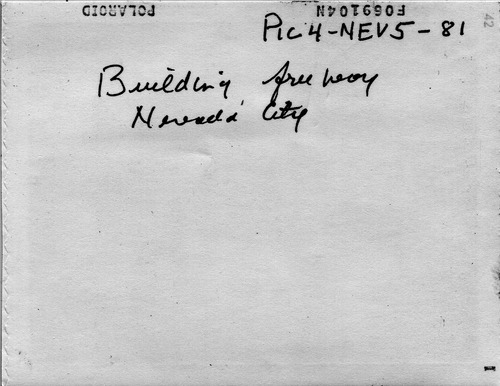 POLAROID
F069104N
42
Pic 4-NEV5-81
Building freeway
Nevada City